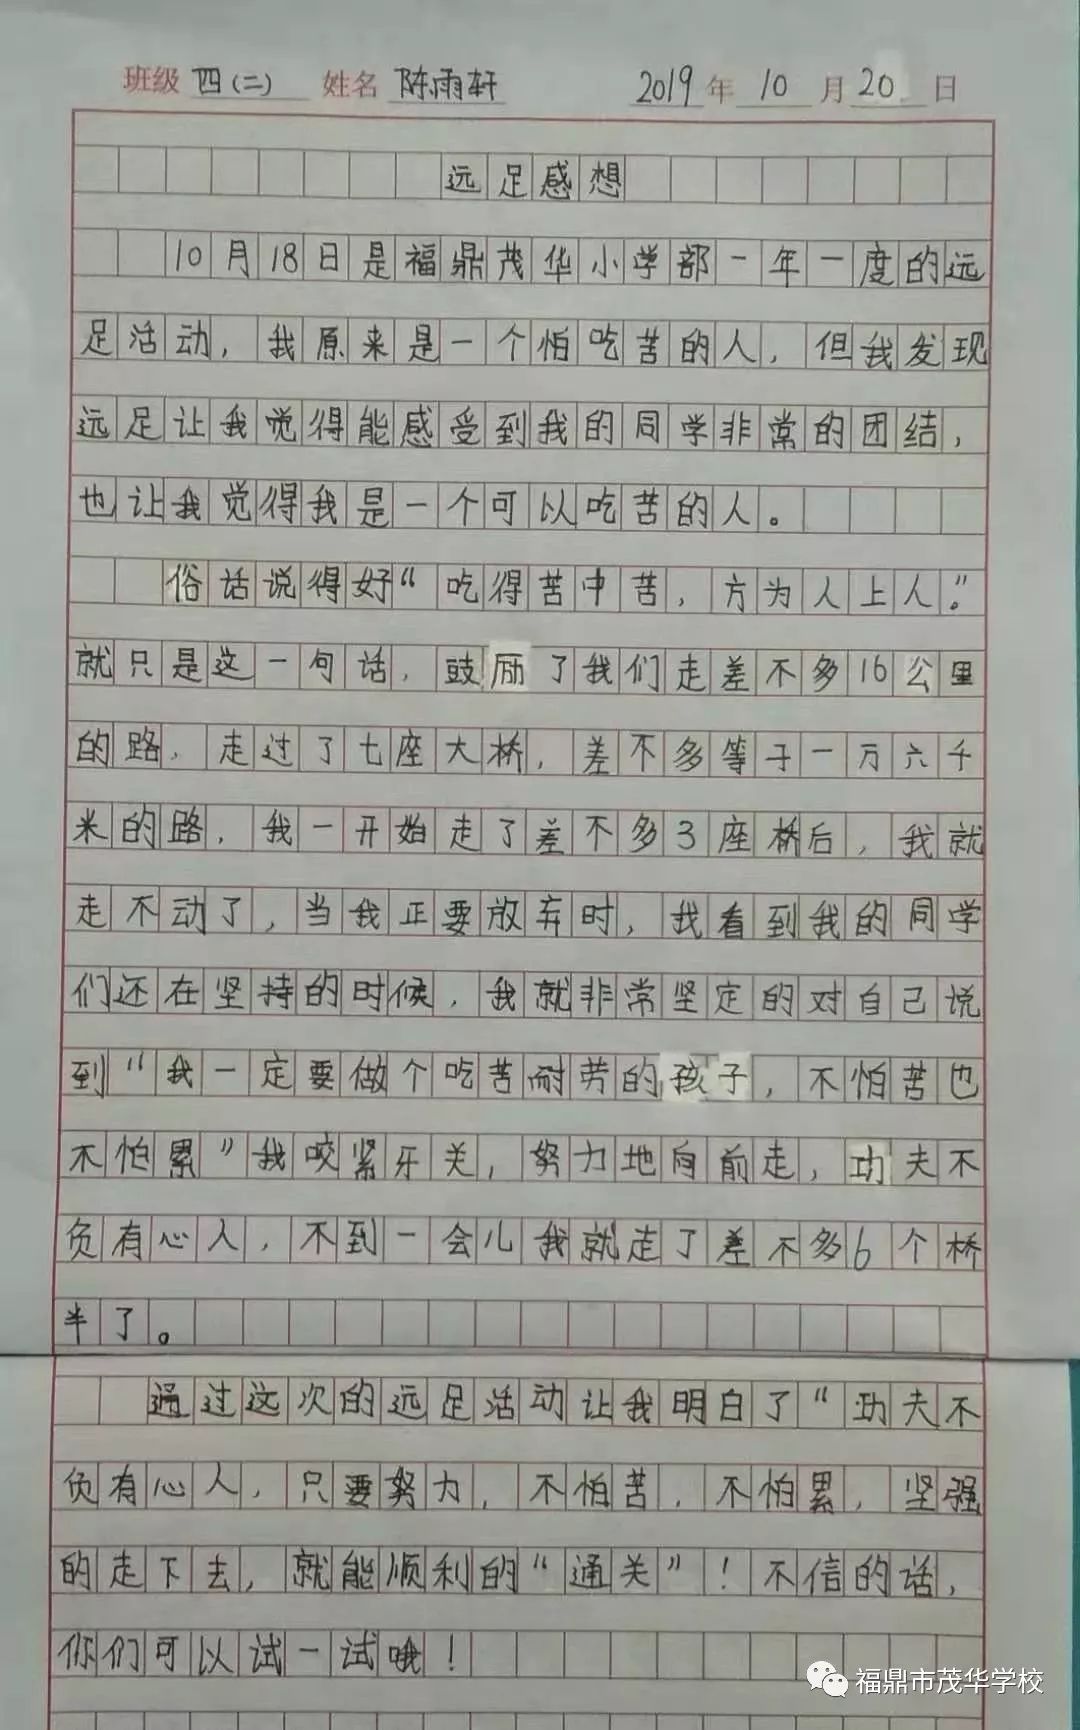 班级 四(二) 姓名 陈雨轩 2019年10月20日
远足感想
10月18日是福鼎茂华小学部一年一度的远
足活动，我原来是一个怕吃苦的人，但我发现
远足让我觉得能感受到我的同学非常的团结，
也让我觉得我是一个可以吃苦的人。
俗话说得好“吃得苦中苦，方为人上人。”
就只是这一句话，鼓励了我们走差不多16公里
的路，走过了七座大桥，差不多等于一万六千
米的路，我一开始走了差不多3座桥后，我就
走不动了，当我正要放弃时，我看到我的同学
们还在坚持的时候，我就非常坚定的对自己说
到“我一定要做个吃苦耐劳的孩子，不怕苦也
不怕累”我咬紧牙关，努力地向前走，功夫不
负有心人，不到一会儿我就走了差不多6个桥
半了。
通过这次的远足活动让我明白了“功夫不
负有心人，只要努力，不怕苦，不怕累，坚强
的走下去，就能顺利的“通关”！不信的话，
你们可以试一试哦！
福鼎市茂华学校